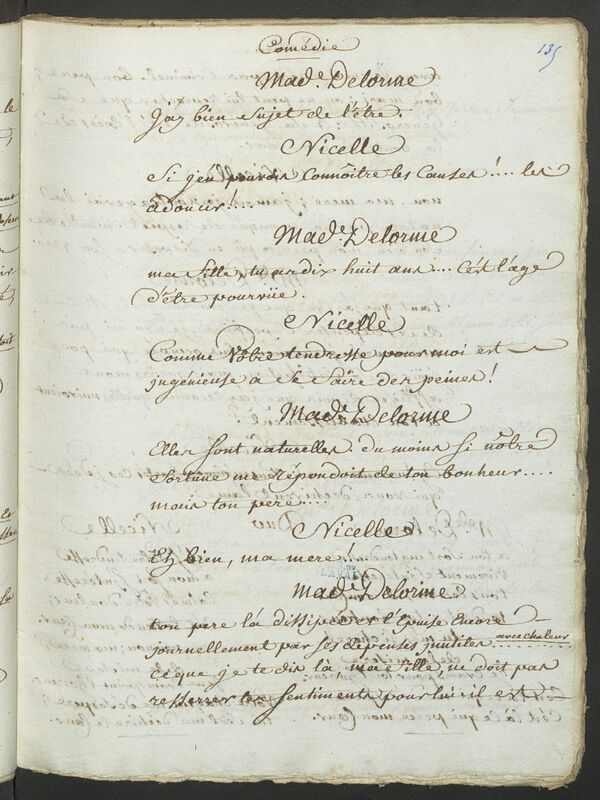 Comédie
135
Made. Delorme
J'ay bien Sujet de l'être.
Nicelle
Si j'en pouvois Connoître les Causes !.... les
adoucir !....
Made. Delorme
ma fille, tu as dix huit ans.... C'est l'age
d'être pourvüe.
Nicelle
Comme Vôtre tendresse pour moi est
ingénieuse a Se faire des peines !
Made. Delorme
Elles Sont naturelles. du moins Si nôtre
fortune me répondoit de ton bonheur....
mais ton pere....
Nicelle
Eh bien, ma mere !
Made. Delorme
ton pere la dissipe l'Epuise Encore
journellement par Ses dépenses inutiles. avec chaleur
ce que je te dis la ma fille, ne doit pas
resserrer tes Sentiments pour lui: il est